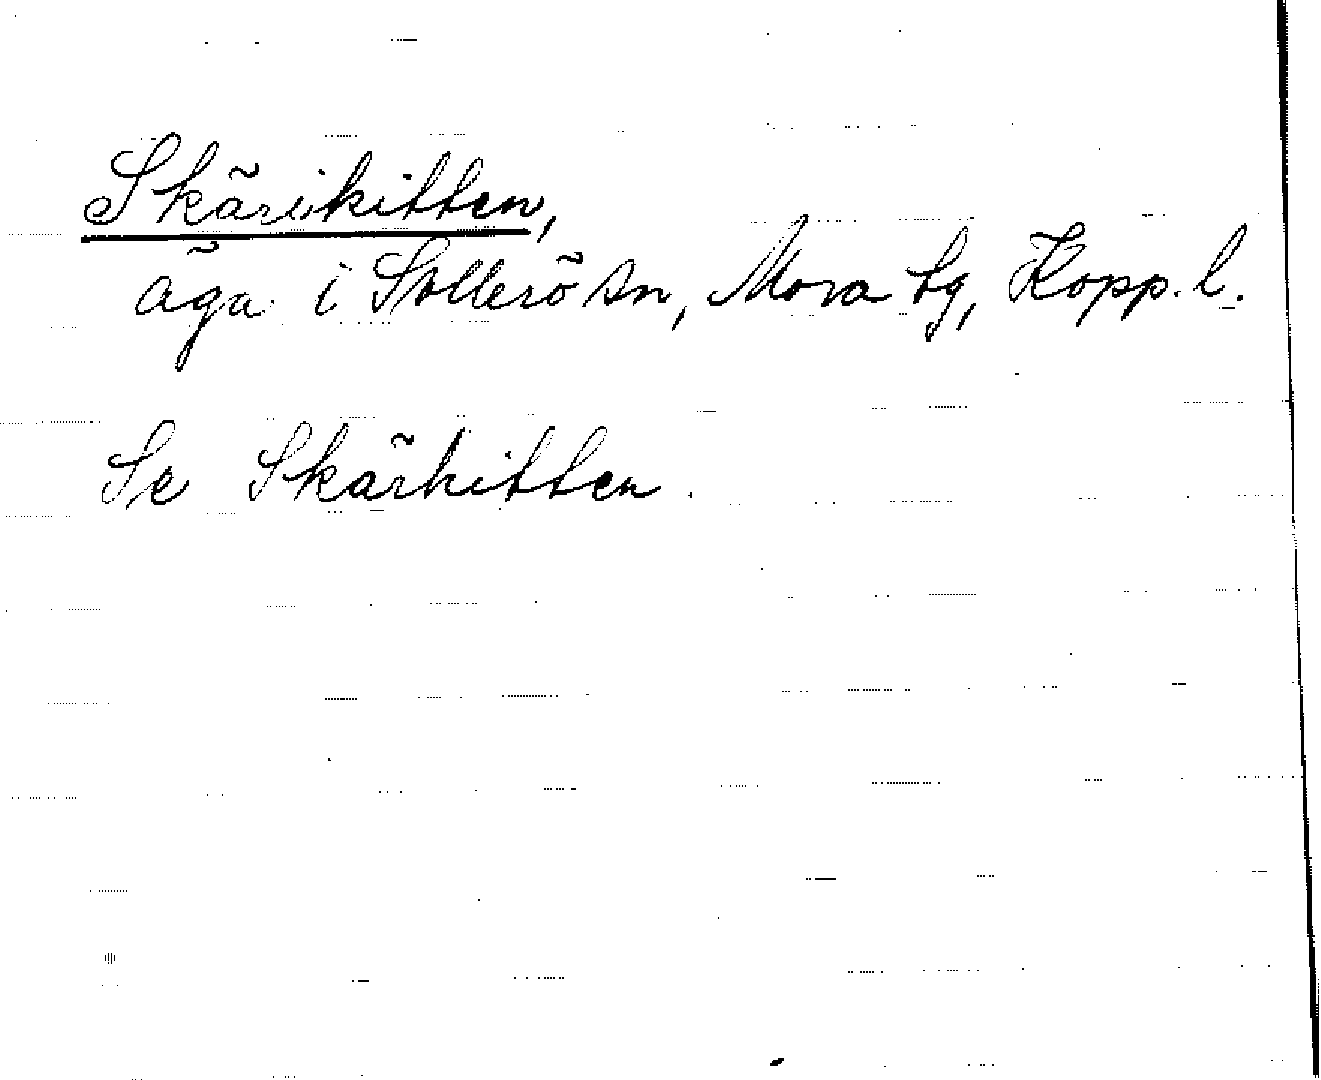 Skärikitten,
äga i Sollerö sn, Mora tg, Kopp. l.
Se Skärkitten.